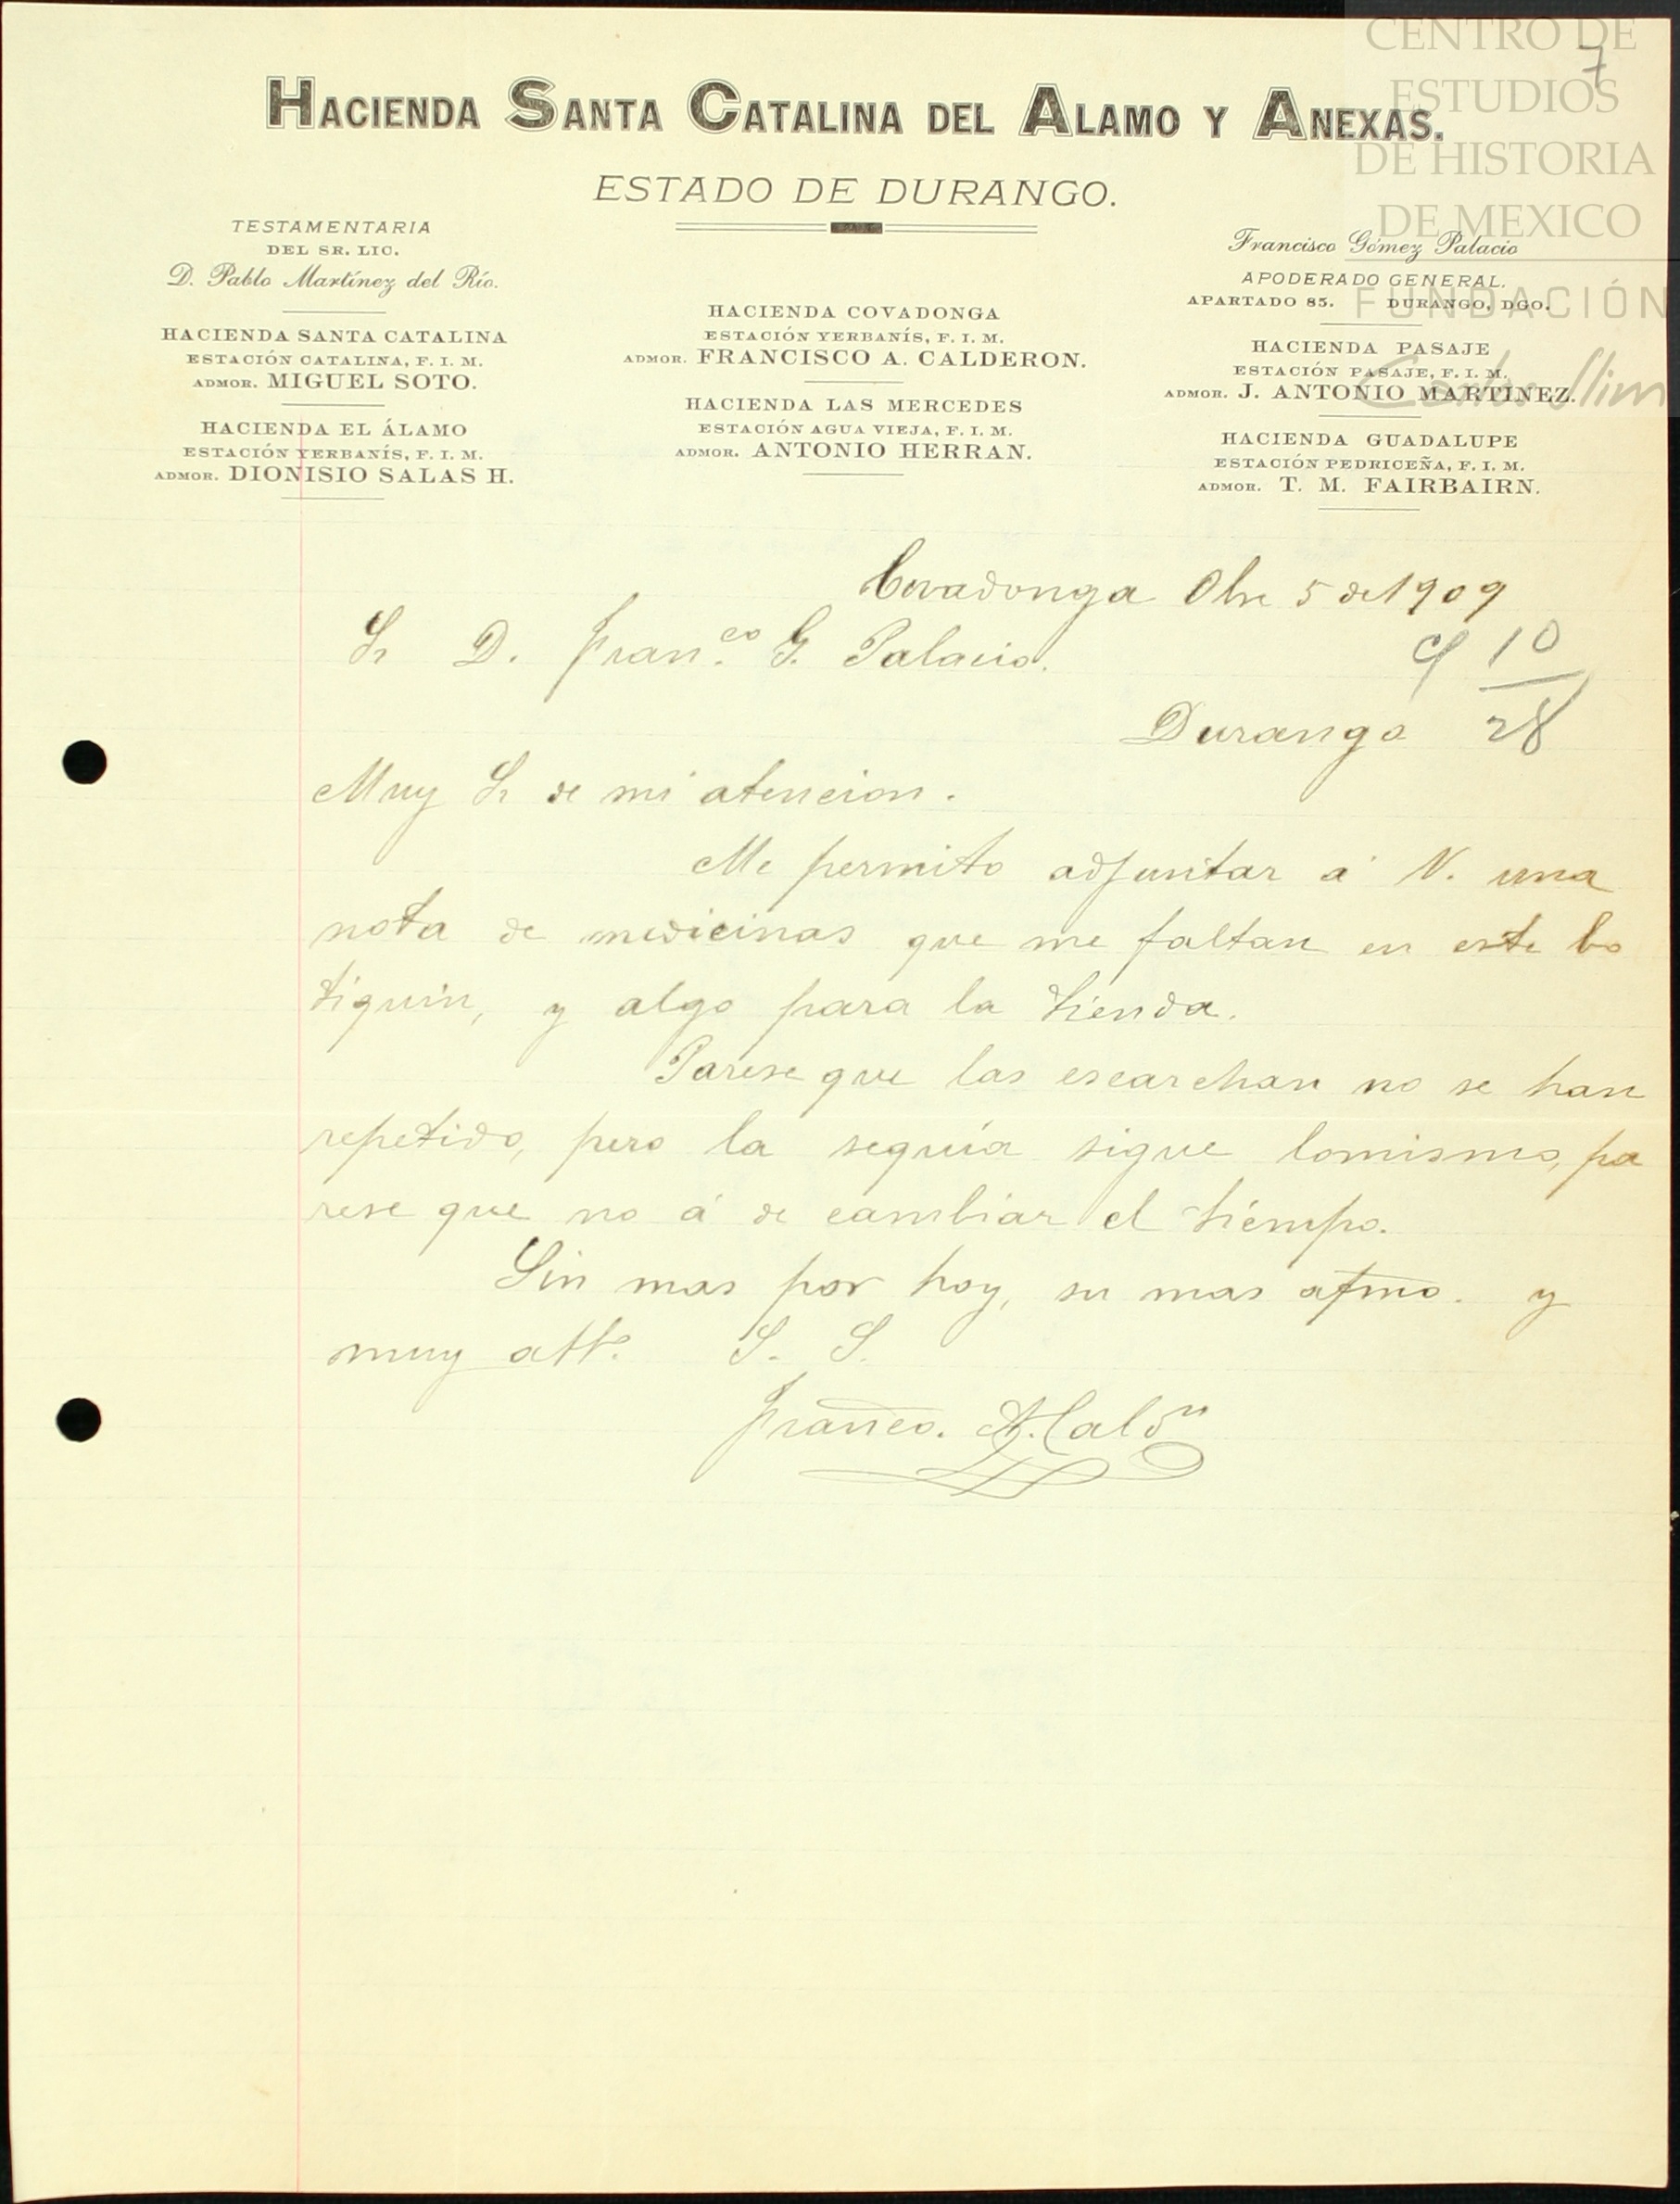 7
CENTRO DE
ESTUDIOS
DE HISTORIA
DE MEXICO
FUNDACIÓN
Carlos Slim
HACIENDA SANTA CATALINA DEL ALAMO Y ANEXAS.
ESTADO DE DURANGO.
TESTAMENTARIA
DEL SR. LIC.
D. Pablo Martínez del Río.
HACIENDA SANTA CATALINA
ESTACIÓN CATALINA, F. I. M.
ADMOR. MIGUEL SOTO.
HACIENDA EL ÁLAMO
ESTACIÓN YERBANÍS, F. I. M.
ADMOR. DIONISIO SALAS H.
HACIENDA COVADONGA
ESTACIÓN YERBANÍS, F. I. M.
ADMOR. FRANCISCO A. CALDERON.
HACIENDA LAS MERCEDES
ESTACIÓN AGUA VIEJA, F. I. M.
ADMOR. ANTONIO HERRAN.
Francisco Gómez Palacio
APODERADO GENERAL.
APARTADO 85. DURANGO, DGO.
HACIENDA PASAJE
ESTACIÓN PASAJE, F. I. M.
ADMOR. J. ANTONIO MARTINEZ.
HACIENDA GUADALUPE
ESTACIÓN PEDRICEÑA, F. I. M.
ADMOR. T. M. FAIRBAIRN.
Covadonga Obre 5 de 1909
Sr D. Fran.co G. Palacio.
10
Durango 28
Muy Sr de mi atencion.
Me permito adjuntar á V. una
nota de medicinas que me faltan en este bo
tiquin, y algo para la tienda.
Parese que las escarchan no se han
repetido, pero la sequia sigue lomismo, pa
rese que no á de cambiar el tiempo.
Sin mas por hoy, su mas afmo. y
muy atto. S. S.
Franco. A. Caldn